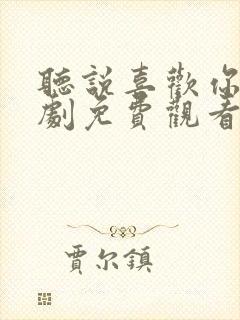 聽說喜歡你
劇免費觀看
賈尔鎮